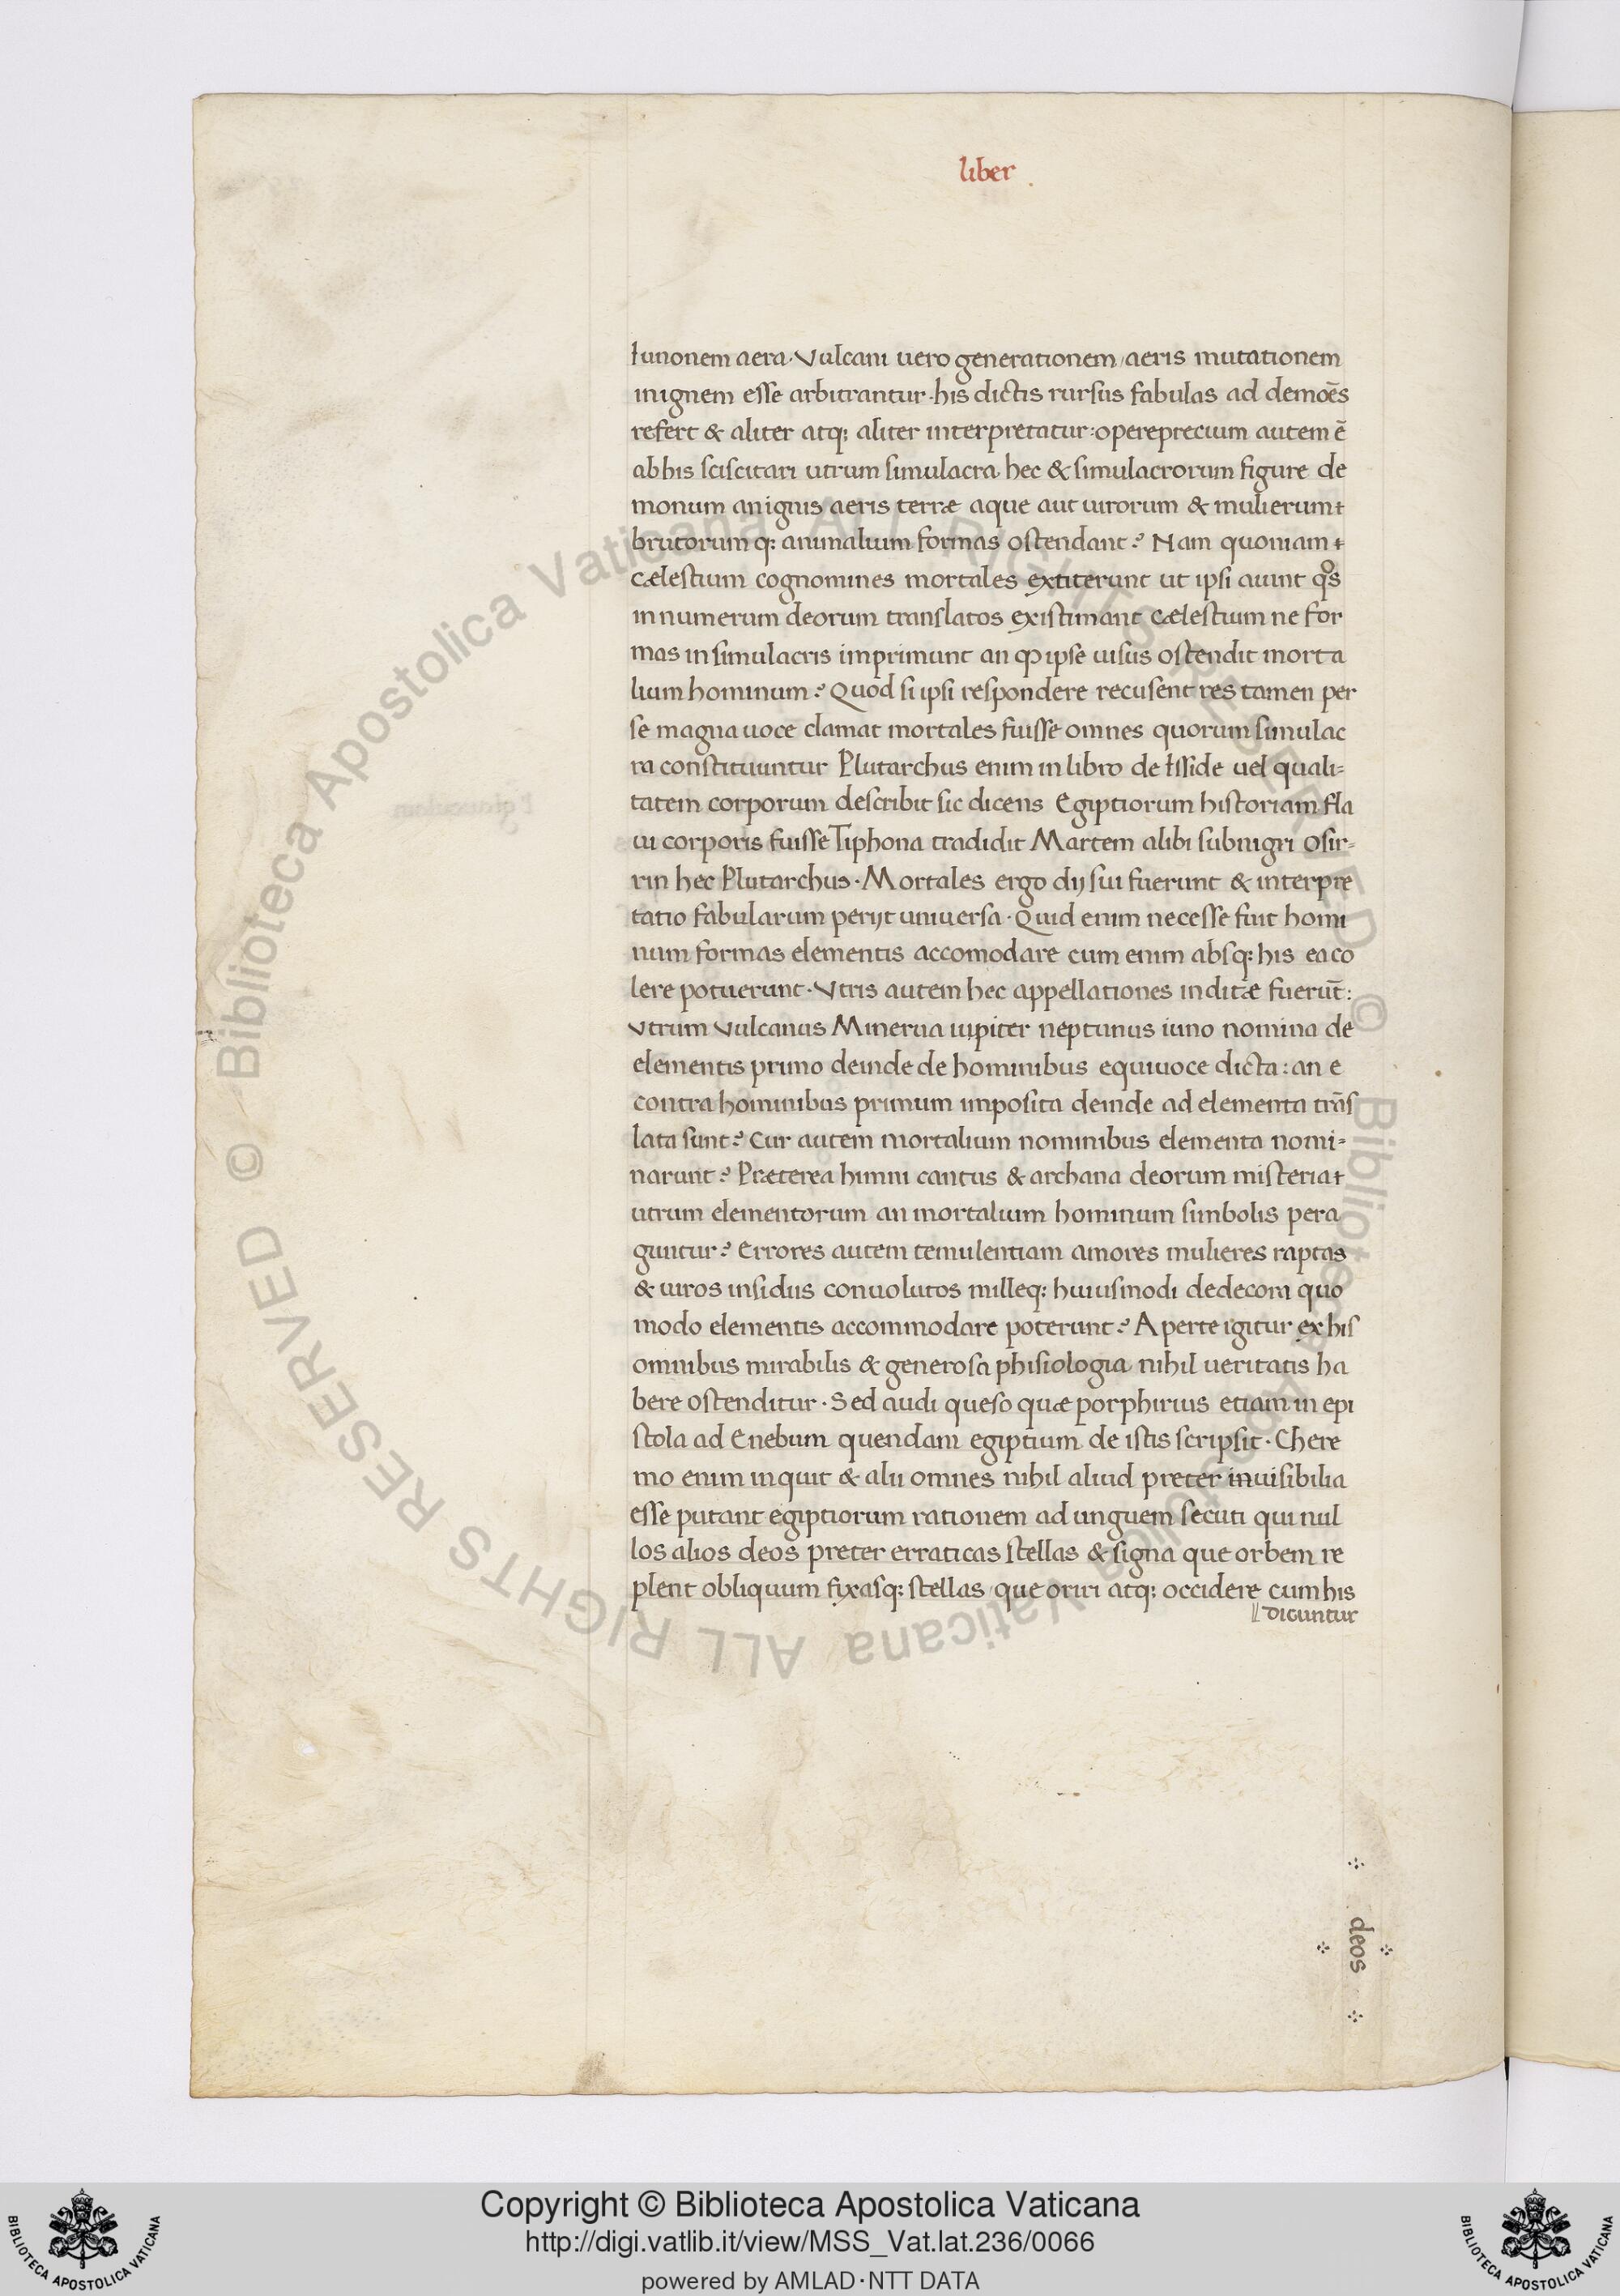 liber
Iunonem aera · Vulcani uero generationem, aeris mutationem
in ignem esse arbitrantur · his dictis rursus fabulas ad demoēs
refert & aliter atq; aliter interpretatur : opereprecium autem ē
ab his sciscitari utrum simulacra hec & simulacrorum figure de
monum an ignis aeris terræ aque aut uirorum & mulierum
brutorum q; animalium formas ostendant? Nam quoniam
cælestium cognomines mortales extiterunt ut ipsi aiunt qᵒs
in numerum deorum translatos existimant cælestium ne for
mas in simulacris imprimunt an ꝙ ipse uisus ostendit morta
lium hominum? Quod si ipsi respondere recusent res tamen per
se magna uoce clamat mortales fuisse omnes quorum simulac
ra constituuntur Plutarchus enim in libro de Isside uel quali=
tatem corporum describit sic dicens Egiptiorum historiam fla
ui corporis fuisse Tiphona tradidit Martem alibi subnigri Osir=
rin hec Plutarchus · Mortales ergo dij sui fuerunt & interpre
tatio fabularum perijt uniuersa · Quid enim necesse fuit homi
num formas elementis accomodare cum enim absq; his ea co
lere potuerunt · Vtris autem hec appellationes inditæ fuerūt :
Vtrum Vulcanus Minerua iupiter neptunus iuno nomina de
elementis primo deinde de hominibus equiuoce dicta : an e
contra hominibus primum imposita deinde ad elementa trās
lata sunt? Cur autem mortalium nominibus elementa nomi=
narunt? Præterea himni cantus & archana deorum misteria
utrum elementorum an mortalium hominum simbolis pera
guntur? Errores autem temulentiam amores mulieres raptas
& uiros insidiis conuolutos milleq; huiusmodi dedecora quo
modo elementis accommodare poterunt? Aperte igitur ex his
omnibus mirabilis & generosa phisiologia nihil ueritatis ha
bere ostenditur · Sed audi queso quæ porphirius etiam in epi
stola ad Enebum quendam egiptium de istis scripsit · Chere
mo enim inquit & alii omnes nihil aliud preter inuisibilia
esse putant egiptiorum rationem ad unguem secuti qui nul
los alios deos preter erraticas stellas & signa que orbem re
plent obliquum fixasq; stellas, que oriri atq; occidere cum his
dicuntur
deos
© Biblioteca Apostolica Vaticana ALL RIGHTS RESERVED © Biblioteca Apostolica Vaticana ALL RIGHTS RESERVED
Copyright © Biblioteca Apostolica Vaticana
http://digi.vatlib.it/view/MSS_Vat.lat.236/0066
powered by AMLAD·NTT DATA
BIBLIOTECA APOSTOLICA VATICANA
BIBLIOTECA APOSTOLICA VATICANA